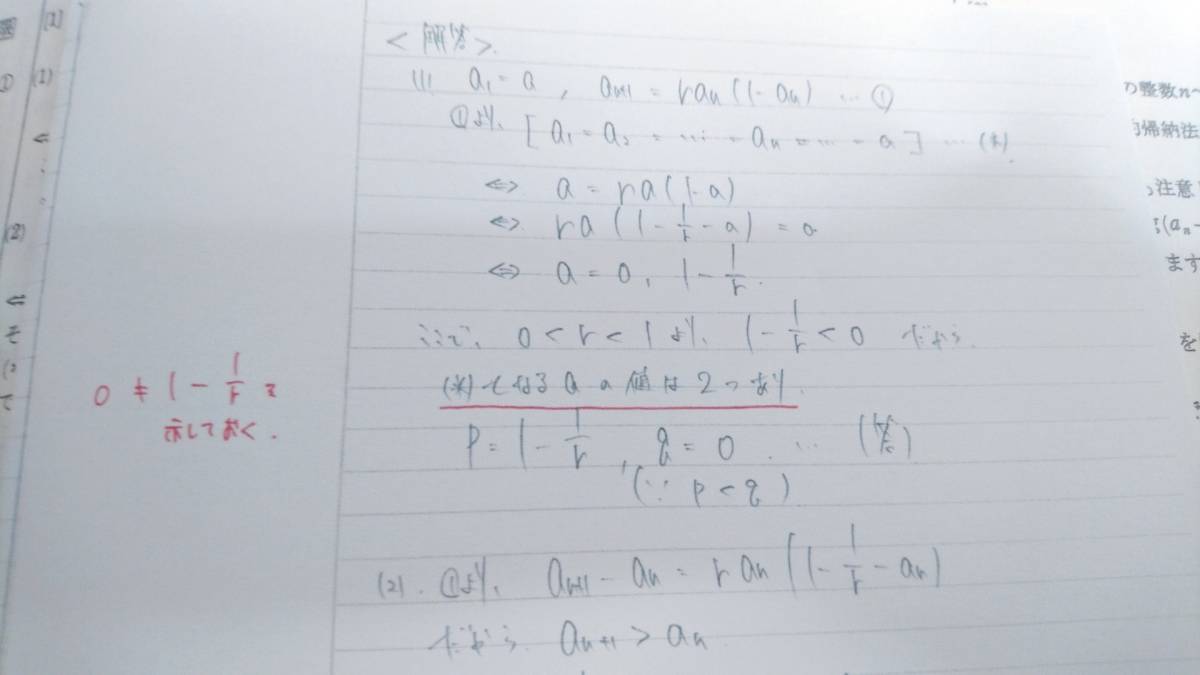 [1]
① (1)
(2)
<解答>.
(1) a₁ = a , aₙ₊₁ = raₙ(1-aₙ) … ①
①より、[a₁ = a₂ = …… = aₙ = … = a] … (*)
⇔ a = ra(1-a)
⇔ ra(1 - 1/r - a) = 0
⇔ a = 0, 1 - 1/r.
ここで、0 < r < 1 より、1 - 1/r < 0 だから
(*)となる a の値は2つあり
0 ≠ 1 - 1/r を
示しておく.
p = 1 - 1/r , q = 0. … (答)
(∵ p < q)
(2). ①より、aₙ₊₁ - aₙ = raₙ(1 - 1/r - aₙ)
だから aₙ₊₁ > aₙ
の整数n
帰納法
注意
(aₙ-
ます
を